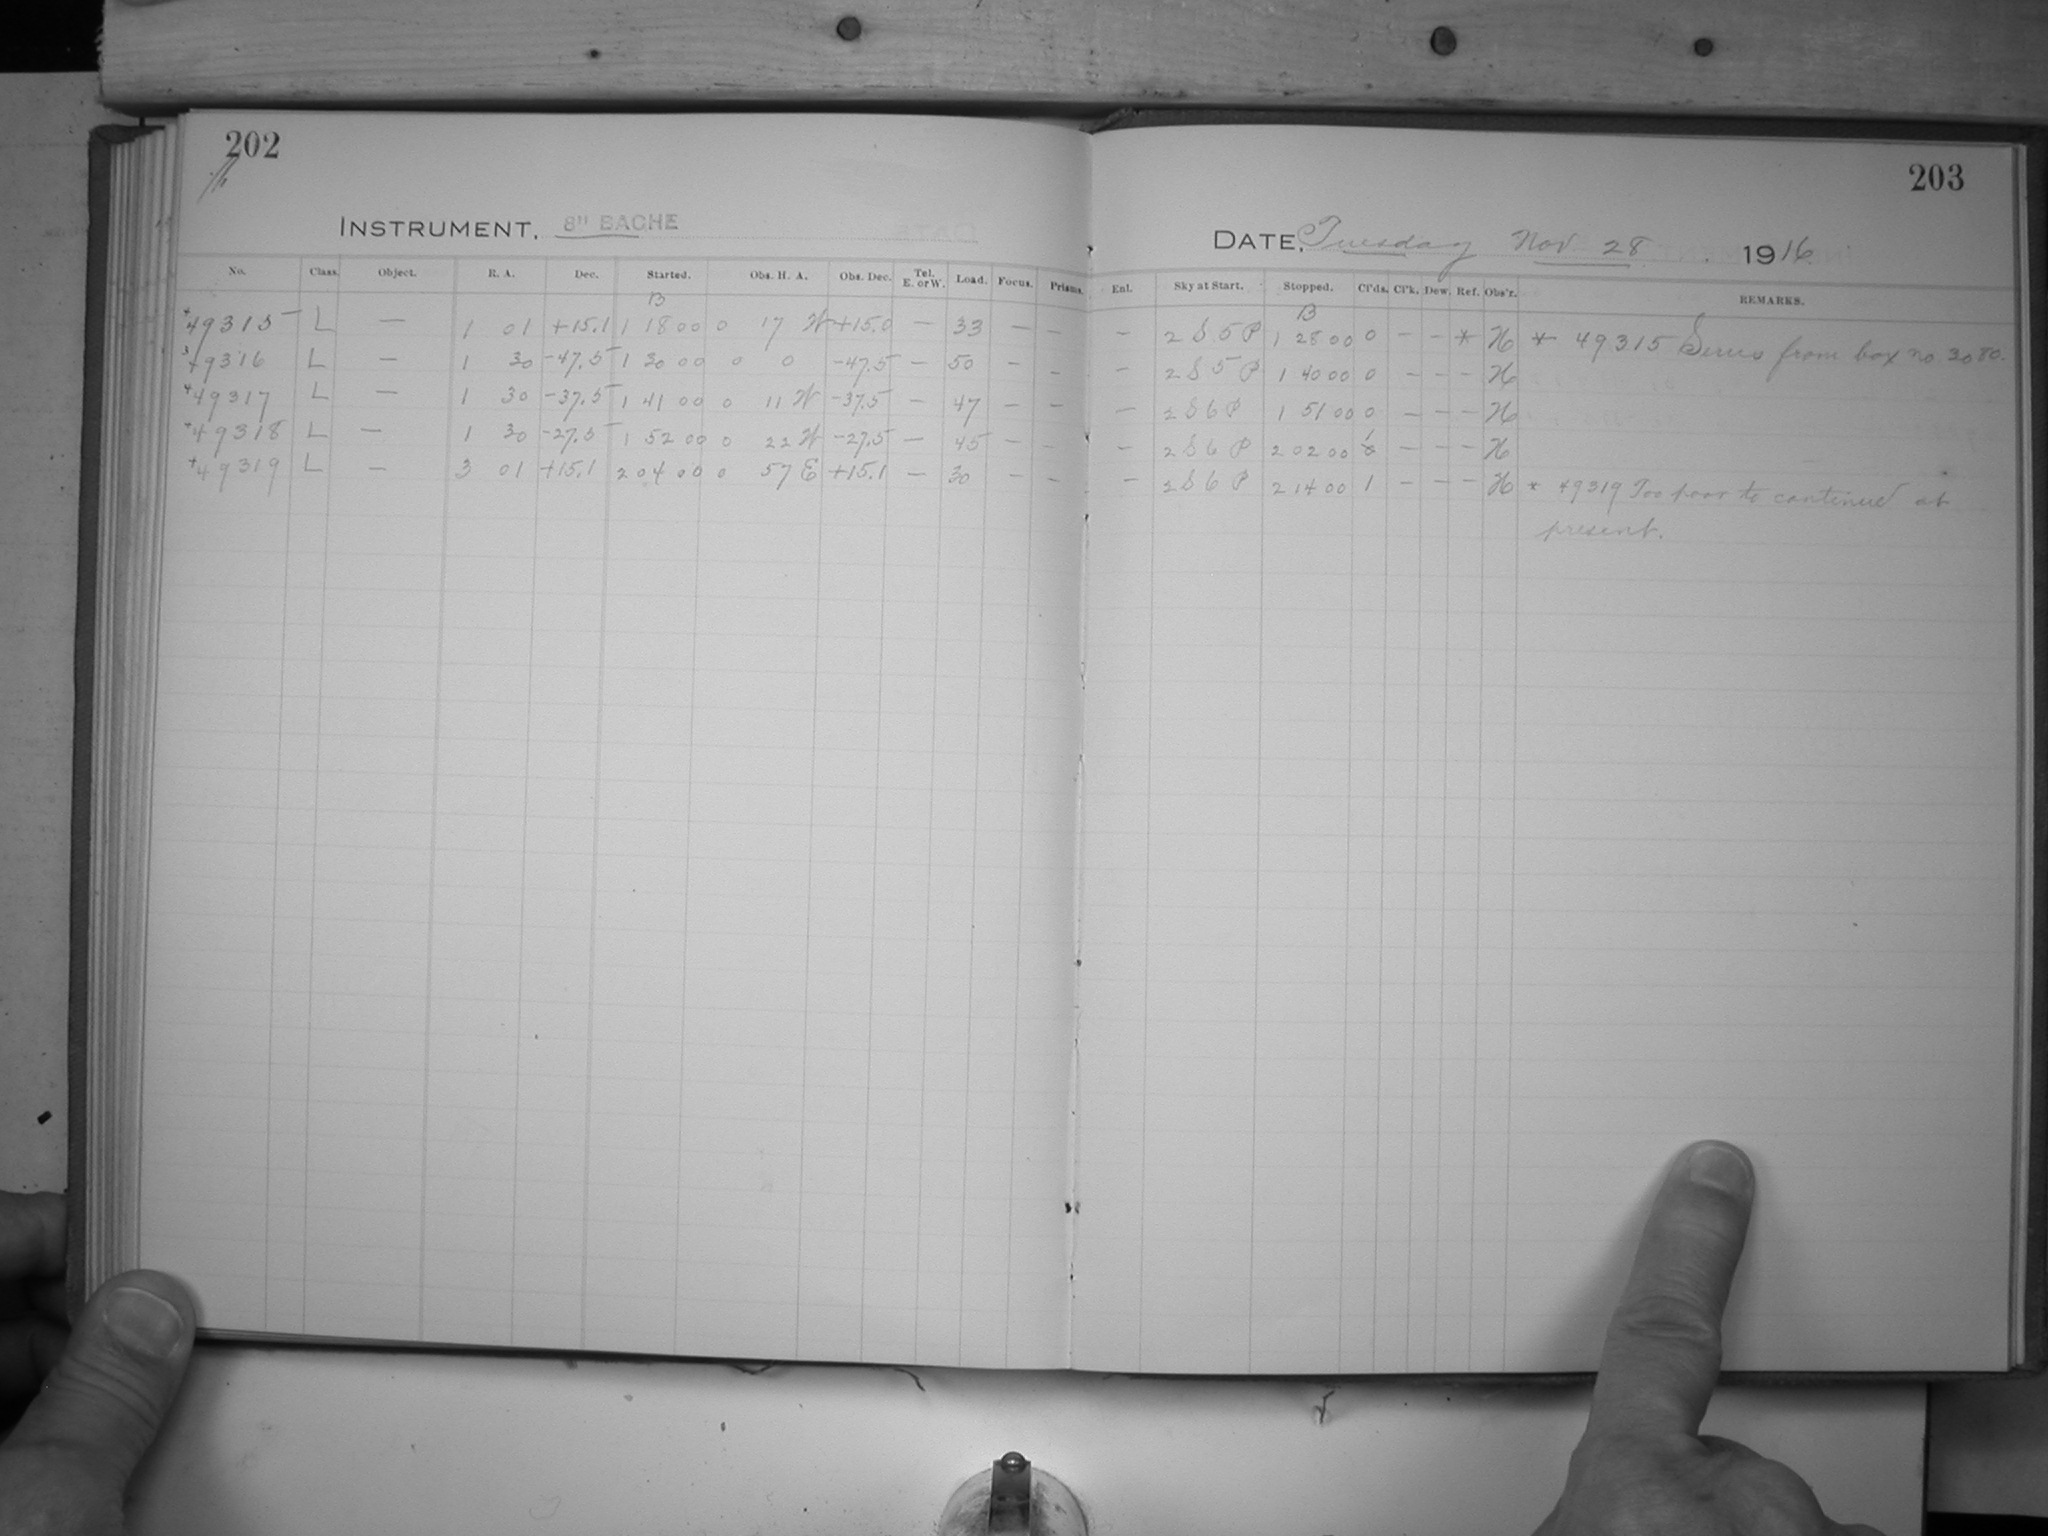 202
203
INSTRUMENT. 8" BACHE
DATE, Tuesday Nov 28. 1916
No. Class. Object. R. A. Dec. Started. Obs. H. A. Obs. Dec. Tel. E. or W. Load. Focus. Prisms. Enl. Sky at Start. Stopped. Cl'ds. Cl'k. Dew. Ref. Obs'r. REMARKS.
B B
49315 L — 1 01 +15.1 1 18 00 0 17 W +15.0 — 33 — — — 2 S 5 P 1 28 00 0 — — * H * 49315 Series from box no 3080.
49316 L — 1 30 -47.5 1 30 00 0 0 -47.5 — 50 — — — 2 S 5 P 1 40 00 0 — — — H
49317 L — 1 30 -37.5 1 41 00 0 11 W -37.5 — 47 — — — 2 S 6 P 1 51 00 0 — — — H
49318 L — 1 30 -27.5 1 52 00 0 22 W -27.5 — 45 — — — 2 S 6 P 2 02 00 — — — H
49319 L — 3 01 +15.1 2 04 00 0 57 E +15.1 — 30 — — — 2 S 6 P 2 14 00 1 — — — H * 49319 Too poor to continue at
present.